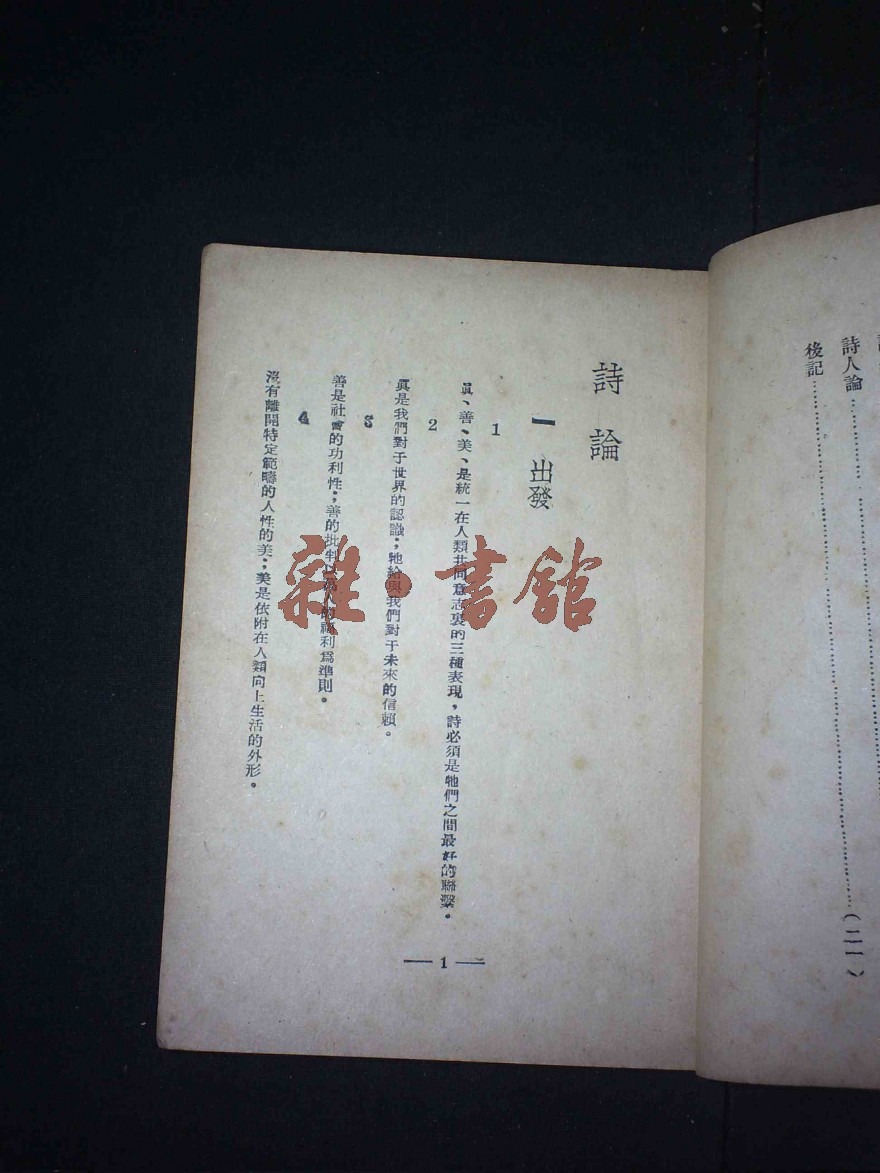 詩人論……………………………………(二一一)
後記……………………………………
詩 論
一 出發
1
眞、善、美、是統一在人類共同意志裏的三種表現，詩必須是牠們之間最好的聯繫。
2
眞是我們對于世界的認識；牠給與我們對于未來的信賴。
3
善是社會的功利性；善的批判以萬人的福利爲準則。
4
沒有離開特定範疇的人性的美；美是依附在人類向上生活的外形。
— 1 —
雜·書館